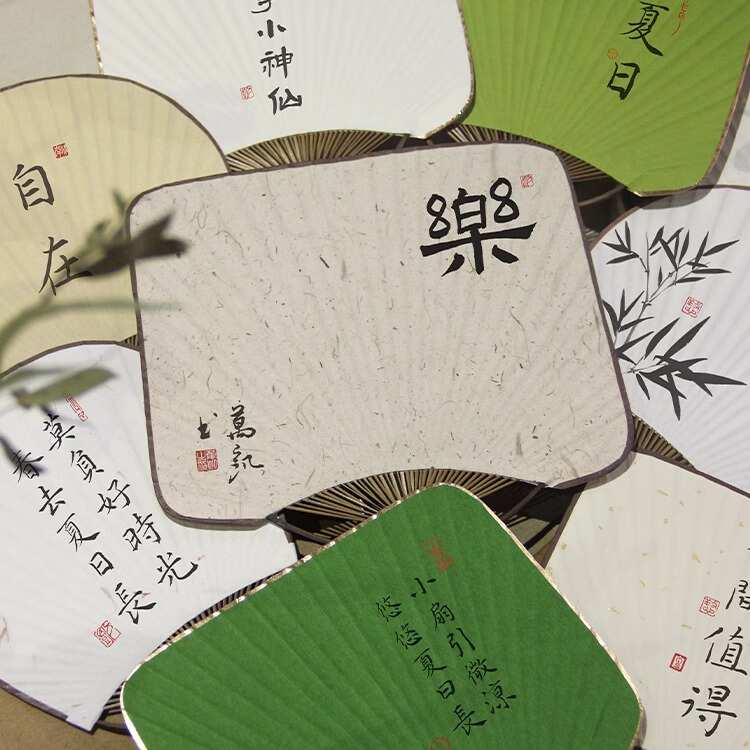 小神仙
夏日
自在
樂
萬記
书
莫負好時光
春去夏日長
小扇引微涼
悠悠夏日長
值得